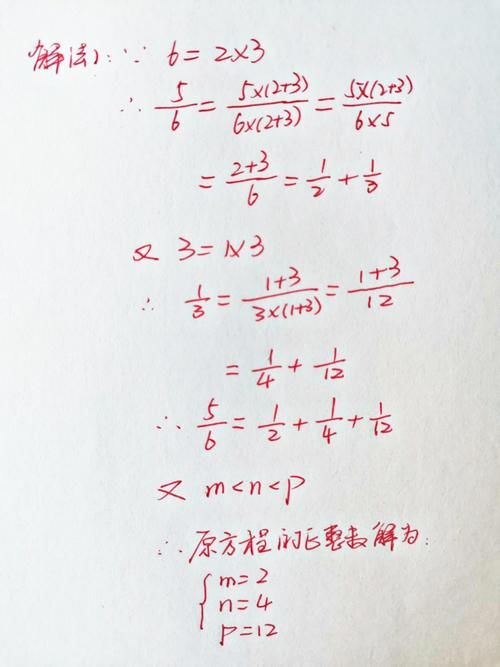 解法1: ∵ 6 = 2×3
∴ 5/6 = 5×(2+3)/6×(2+3) = 5×(2+3)/6×5
= 2+3/6 = 1/2 + 1/3
又 3 = 1×3
∴ 1/3 = 1+3/3×(1+3) = 1+3/12
= 1/4 + 1/12
∴ 5/6 = 1/2 + 1/4 + 1/12
又 m<n<p
∴ 原方程的正整数解为:
{ m=2
n=4
p=12